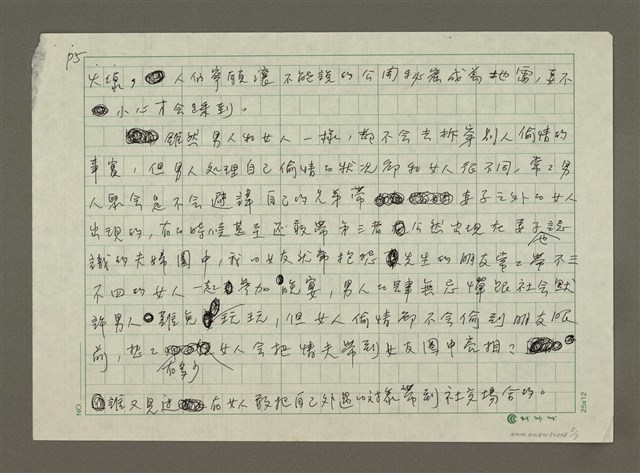 P5
火壕，人們寧願讓不能說的公開秘密成為地雷，要不
小心才会踩到。
雖然男人和女人一樣，都不会去拆穿別人偷情的
事實，但男人処理自己偷情的狀況卻和女人很不同，常常男
人聚会是不会避諱自己的兄弟帶妻子之外的女人
出現的，有的時候甚至还敢帶第三者公然出現在妻子也認
識的夫婦圈中，我的女友就常抱怨先生的朋友常常帶不三
不四的女人一起參加晚宴，男人的肆無忌憚跟社会默
許男人難免玩玩，但女人偷情卻不会偷到朋友眼
前，想想有多少女人会把情夫帶到女友圈中亮相？
誰又見过有女人敢把自己外遇的对象帶到社交場合的。
NO.
25x12